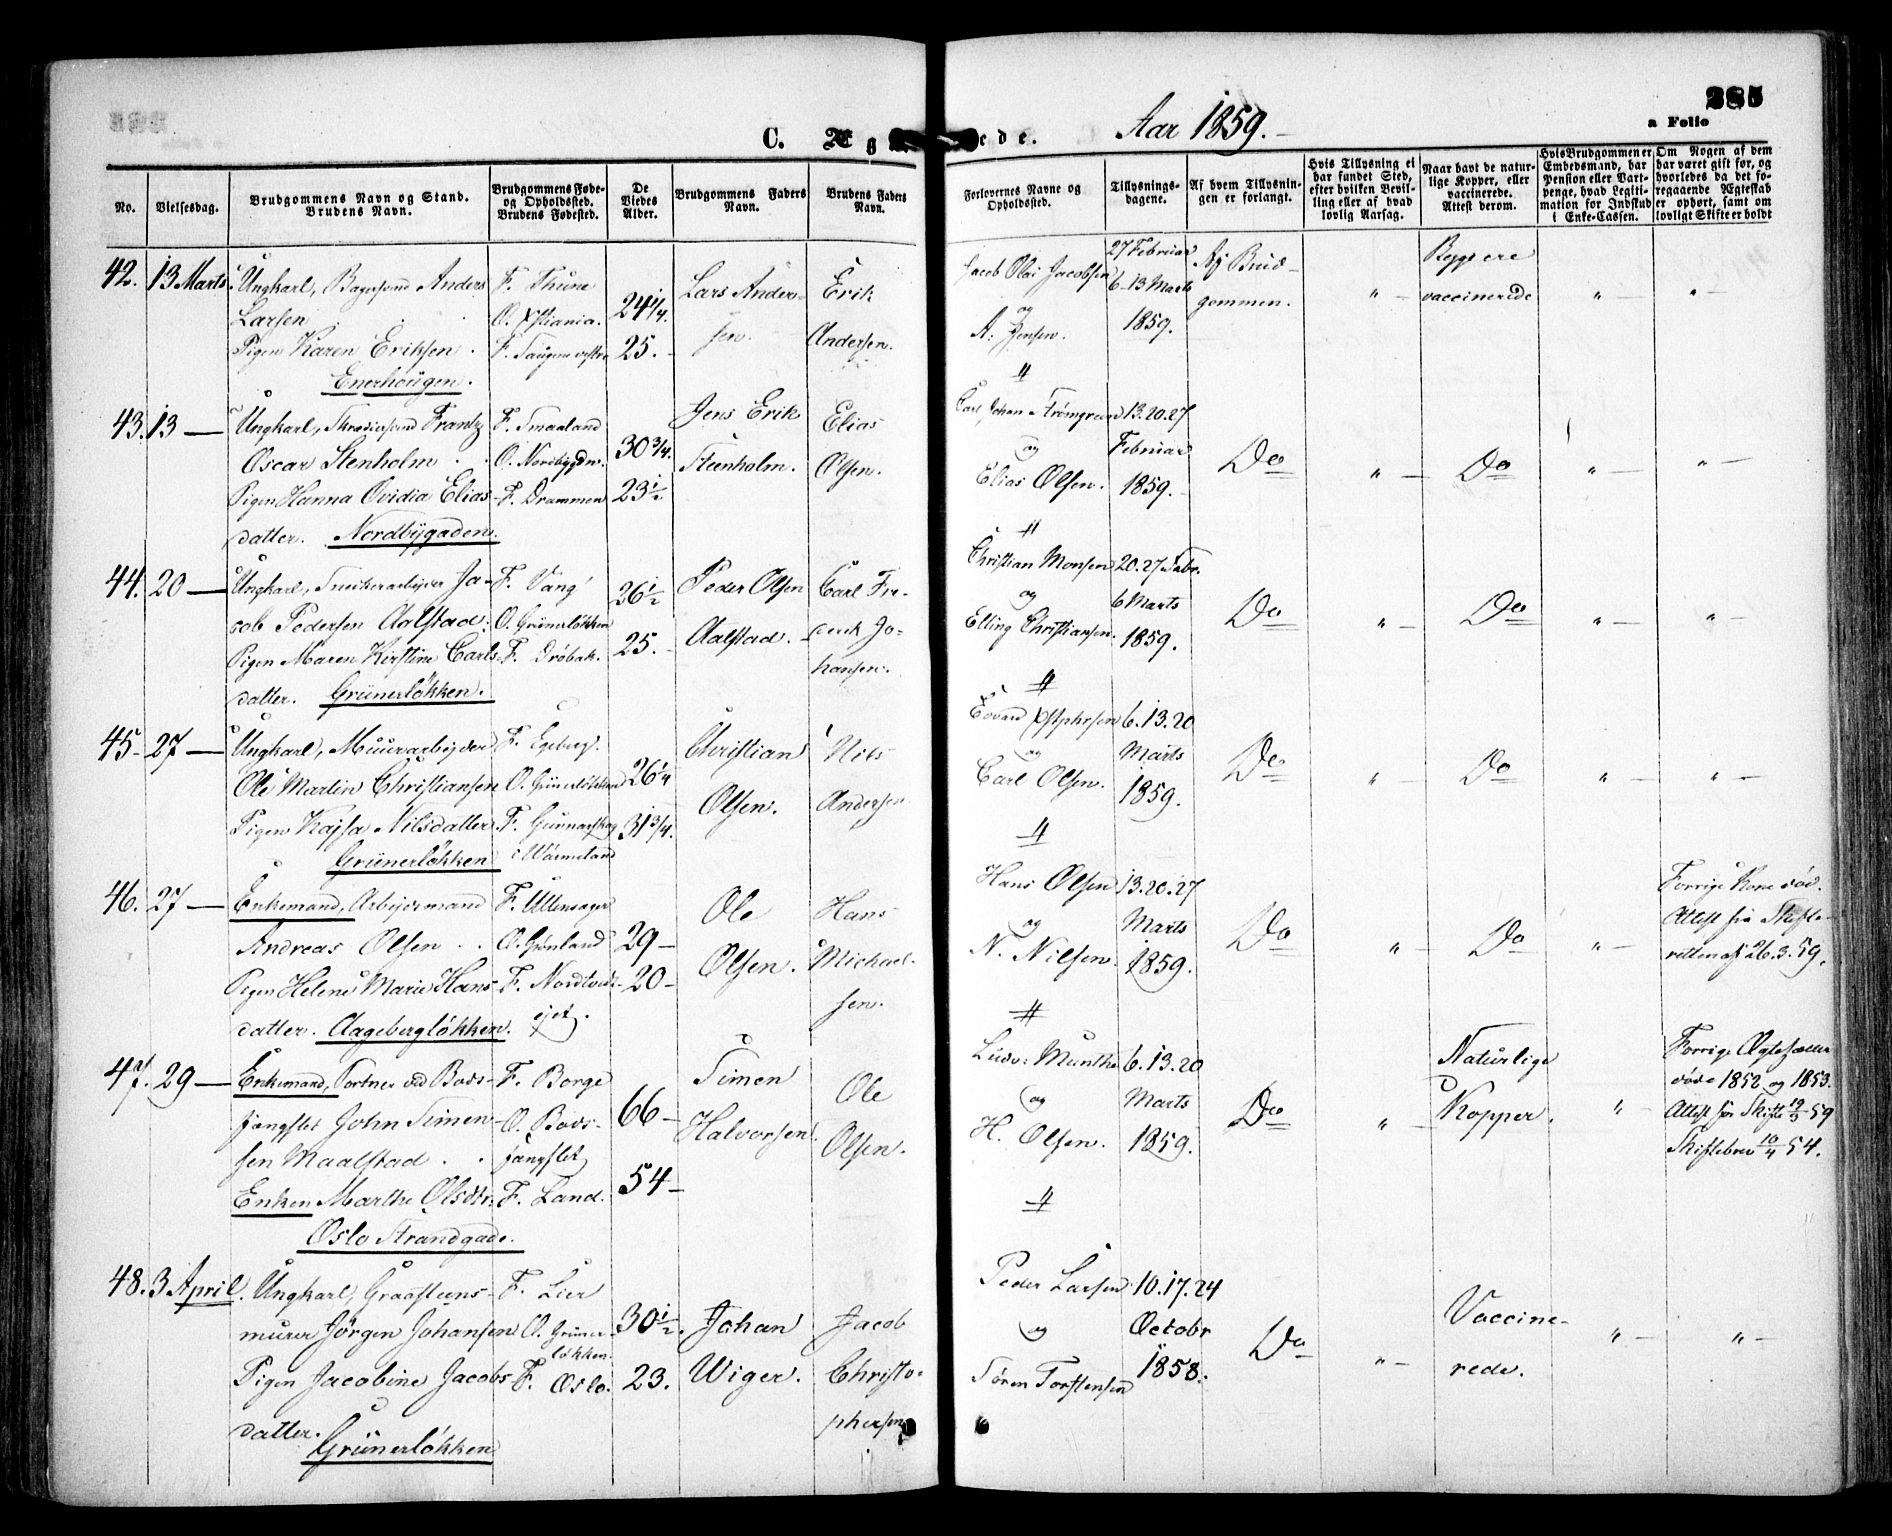 385
a Folio
C. Æg
ede.
Aar 1859.
No.
Vielsesdag.
Brudgommens Navn og Stand.
Brudens Navn.
Brudgommens Føde-
og Opholdsted.
Brudens Fødested.
De
Viedes
Alder.
Brudgommens Faders
Navn.
Brudens Faders
Navn.
Forlovernes Navne og
Opholdsted.
Tillysnings-
dagene.
Af hvem Tillysnin-
gen er forlangt.
Hvis Tillysning ei
har fundet Sted,
efter hvilken Bevil-
ling eller af hvad
lovlig Aarsag.
Naar havt de natur-
lige Kopper, eller
vaccinerede.
Attest derom.
Hvis Brudgommen er
Embedsmand, har
Pension eller Vart-
penge, hvad Legiti-
mation for Indskud
i Enke-Cassen.
Om Nogen af dem
har været gift før, og
hvorledes da det fo-
regaaende Ægteskab
er ophørt, samt om
lovligt Skifte er holdt
42. 13 Marts. Ungkarl, Anders
Larsen
Pigen Karen Eriksen.
Enerhougen.
F. Thune
O. Xstiania.
F. vestre
24 1/4.
25.
Lars Ander-
sen.
Erik
Andersen.
Jacob Olai Jacobsen
og
A. Jensen.
27 Februar
6-13 Marts
1859.
Af Brud-
gommen.
" —
Begge ere
vaccinerede
" —
" —
43. 13 — Ungkarl, Frantz
Oscar Stenholm
Pigen Hanna Ovidia Elias-
datter. Nordbygaden.
F. Smaaland
O. Nordbygdn.
F. Drammen
30 3/4.
23 1/2
Jens Erik
Steenholm.
Elias
Olsen.
Carl Johan Strømgreen
og
Elias Olsen.
13.20.27
Februar
1859.
Do
" —
Do
" —
" —
44. 20 — Ungkarl, Snekkerarbeider Ja-
cob Pedersen Aalstad.
Pigen Maren Kirstine Carls-
datter. Grünerløkken.
F. Vang
O. Grünerløkken
F. Drøbak.
26 1/2
25.
Peder Olsen
Aalstad.
Carl Fre-
derik Jo-
hansen.
Christian Monsen
og
Elling Christiansen.
20.27 Febr.
6 Marts
1859.
Do
" —
Do
" —
" —
45 27 — Ungkarl, Muurarbeider
Ole Martin Christiansen
Pigen Kajsa Nilsdatter
Grünerløkken
F. Egeberg.
O. Grünerløkken
F. Gunnarskog
i Wärmeland
26 1/4
31 3/4.
Christian
Olsen.
Nils
Andersen
Edvard Xstphersen
og
Carl Olsen.
6.13.20
Marts
1859.
Do
" —
Do
" —
" —
46. 27 — Enkemand, Arbeidsmand
Andreas Olsen
Pigen Helene Marie Hans-
datter. Aagebergløkken.
F. Ullensager
O. Grønland
F. Nordtvedt-
ejet.
29 —
20 —
Ole
Olsen.
Hans
Michael-
sen.
Hans Olsen
og
N. Nilsen.
13.20.27
Marts
1859.
Do
" —
Do
" —
Forrige Kone død.
Attest fra Skifte-
retten af 26.3.59.
47. 29 — Enkemand, Portner ved Bods-
fængslet John Simen-
sen Maalstad
Enken Marthe Olsdtr.
Oslo Strandgade.
F. Borge
O. Bods-
fængslet
F. Land.
66 —
54 —
Simen
Halvorsen.
Ole
Olsen.
Ludv: Munthe
og
H. Olsen.
6.13.20
Marts
1859.
Do
" —
Naturlige
Kopper.
" —
Forrige Ægtefæller
døde 1852 og 1853.
Attest for Skifte 19/3 59
Skiftebrev 10/4 54.
48. 3 April. Ungkarl, Graasteens-
murer Jørgen Johansen
Pigen Jacobine Jacobs-
datter.
Grünerløkken
F. Lier
O. Grüner-
løkken.
F. Oslo.
30 1/2.
23.
Johan
Wiger.
Jacob
Christo-
phersen
Peder Larsen
og
Søren Torstensen
10.17.24
Octobr
1858.
Do
" —
Vaccine-
rede.
" —
" —